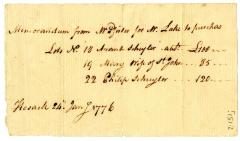 Memorandum from Mr. Price for Mr. Lake to purchas
Lots No. 18 Arant Schuyler at £100
19 Mary Wife of St. John .. 85
22 Philip Schuyler .. 120
Newark 24th Jany 1776